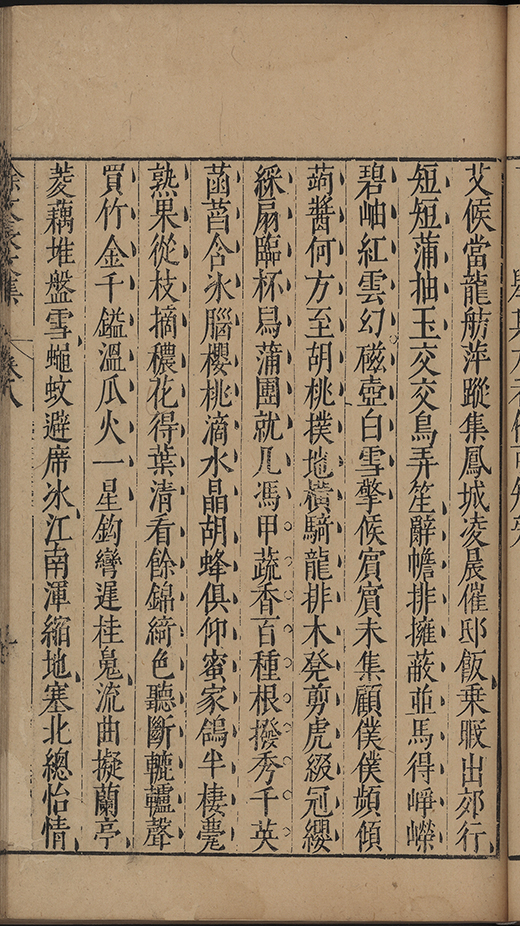 艾候當龍舫萍蹤集鳳城凌晨催邸飯乘暇出郊行
短短蒲抽玉交交鳥弄笙辭幨排擁蔽並馬得崢嶸
碧岫紅雲幻磁壺白雪擎候賓賓未集顧僕僕頻傾
蒟醬何方至胡桃撲地橫騎龍排木凳剪虎綴冠纓
綵扇臨杯舄蒲團就几馮甲蔬香百種根撥秀千英
菡萏含冰腦櫻桃滴水晶胡蜂俱仰蜜家鴿半棲甍
熟果從枝摘穠花得葉清看餘錦綺色聽斷轆轤聲
買竹金千鎰溫瓜火一星鈎彎遲桂兔流曲擬蘭亭
菱藕堆盤雪蠅蚊避席冰江南渾縮地塞北總怡情
徐文長文集 卷八